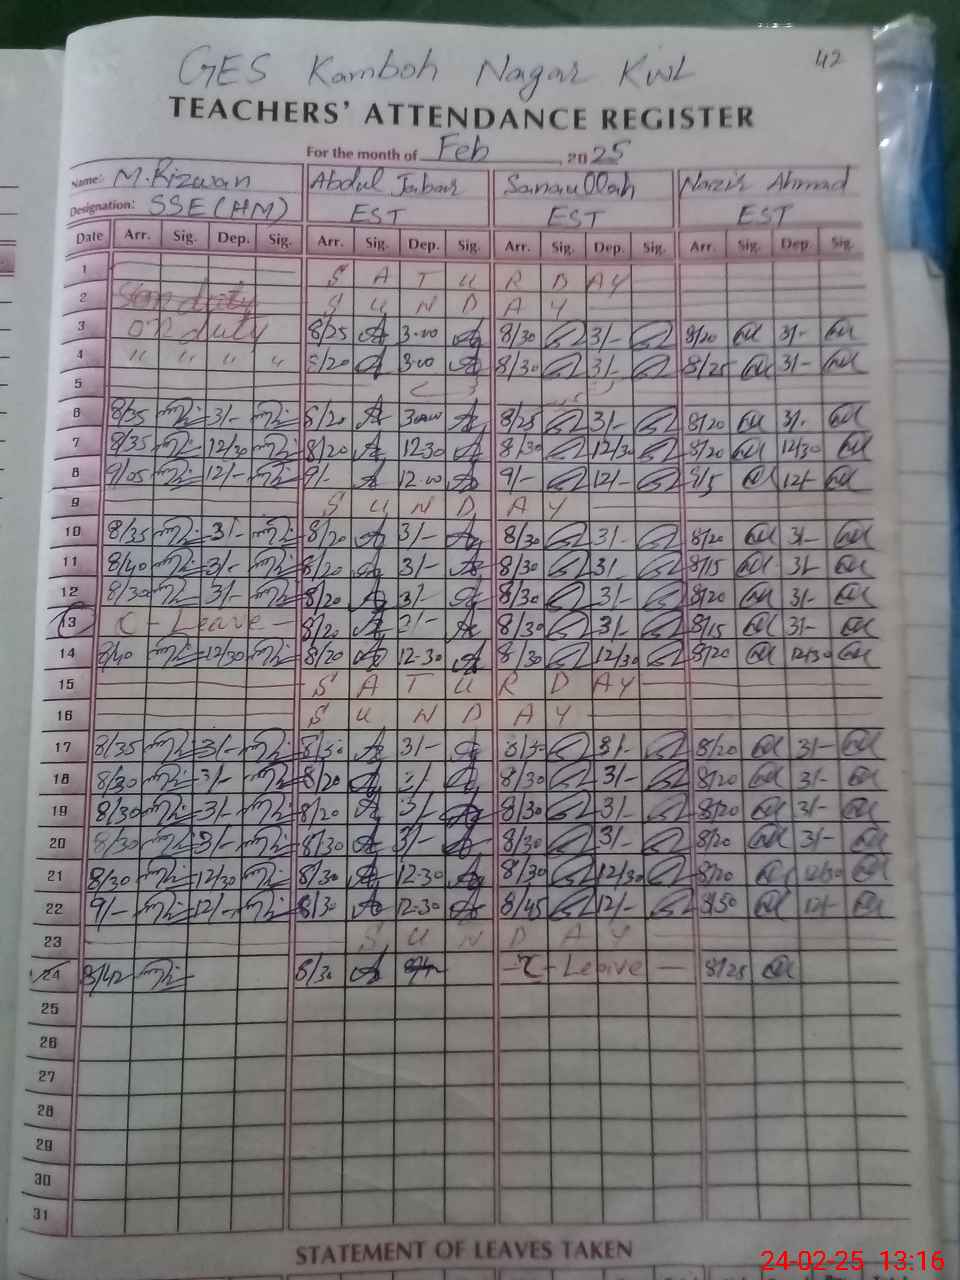 42
GES Kamboh Nagar Kwl
TEACHERS' ATTENDANCE REGISTER
For the month of Feb, 2025
Name:- M.Rizwan Abdul Jabar Sanaullah Nazir Ahmad
Designation: SSE (HM) EST EST EST
Date Arr. Sig. Dep. Sig. Arr. Sig. Dep. Sig. Arr. Sig. Dep. Sig. Arr. Sig. Dep. Sig.
1 S A T U R D A Y
2 S U N D A Y
3 on duty 8/25 3-00 8/30 3/- 8/20 3/-
4 " " " " 8/20 3-00 8/30 3/- 8/25 3/-
5
6 8/35 3/- 8/20 8/25 3/- 8/20 3/-
7 8/35 12/30 8/20 12-30 8/30 12/30 8/20 12/30
8 9/05 12/- 9/- 12-00 9/- 12/- 12/-
9 S U N D A Y
10 8/35 3/- 8/20 3/- 8/30 3/- 8/20 3/-
11 8/40 3/- 8/20 3/- 8/30 3/- 8/15 3/-
12 8/30 3/- 8/20 3/- 8/30 3/- 8/20 3/-
13 C - Leave - 8/20 8/30 3/- 8/15 3/-
14 8/40 12/30 8/20 12-30 8/30 12/30 8/20 12/30
15 S A T U R D A Y
16 S U N D A Y
17 8/35 3/- 3/- 3/- 8/20 3/-
18 8/30 3/- 8/20 8/30 3/- 8/20 3/-
19 8/30 3/- 8/20 3/- 8/30 3/- 8/20 3/-
20 8/30 3/- 8/30 3/- 8/30 3/- 8/20 3/-
21 8/30 12/30 8/30 12-30 8/30 12/30 8/20 12/30
22 9/- 12/- 8/30 12-30 8/45 12/- 8/50 12/-
23 S U N D A Y
24 8/42 8/30 - C - Leave - 8/25
25
26
27
28
29
30
31
STATEMENT OF LEAVES TAKEN
24-02-25 13:16